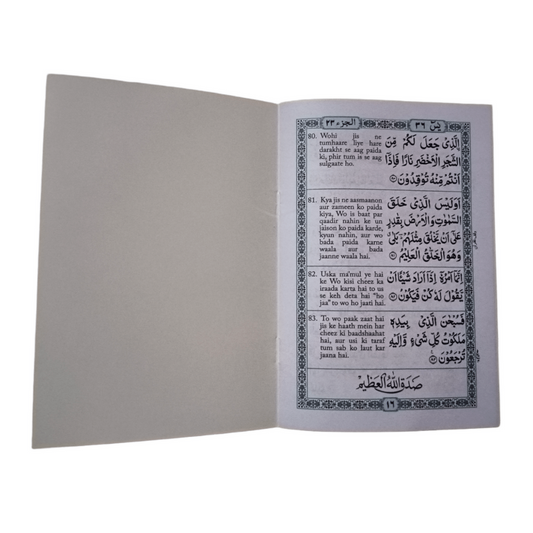 الجزء ٢٣
يٰسٓ ٣٦
80. Wohi jis ne
tumhaare liye hare
darakht se aag paida
ki, phir tum is se aag
sulgaate ho.
الَّذِیْ جَعَلَ لَکُمْ مِّنَ
الشَّجَرِ الْاَخْضَرِ نَارًا فَاِذَآ
اَنْتُمْ مِّنْهُ تُوْقِدُوْنَ
81. Kya jis ne aasmaanon
aur zameen ko paida
kiya, Wo is baat par
qaadir nahin ke un
jaison ko paida karde,
kyun nahin, aur wo
bada paida karne
waala aur bada
jaanne waala hai.
اَوَلَیْسَ الَّذِیْ خَلَقَ
السَّمٰوٰتِ وَالْاَرْضَ بِقٰدِرٍ
عَلٰٓی اَنْ یَّخْلُقَ مِثْلَهُمْ ؕ بَلٰی ۗ
وَهُوَ الْخَلّٰقُ الْعَلِیْمُ
82. Uska ma'mul ye hai
ke Wo kisi cheez ka
iraada karta hai to us
se keh deta hai "ho
jaa" to wo ho jaati hai.
اِنَّمَآ اَمْرُهٗٓ اِذَآ اَرَادَ شَیْـًٔا اَنْ
یَّقُوْلَ لَهٗ کُنْ فَیَکُوْنُ
83. To wo paak zaat hai
jis ke haath mein har
cheez ki baadshaahat
hai, aur usi ki taraf
tum sab ko laut kar
jaana hai.
فَسُبْحٰنَ الَّذِیْ بِیَدِهٖ
مَلَکُوْتُ کُلِّ شَیْءٍ وَّاِلَیْهِ
تُرْجَعُوْنَ
صَدَقَ اللهُ الْعَظِیْمُ
١٦